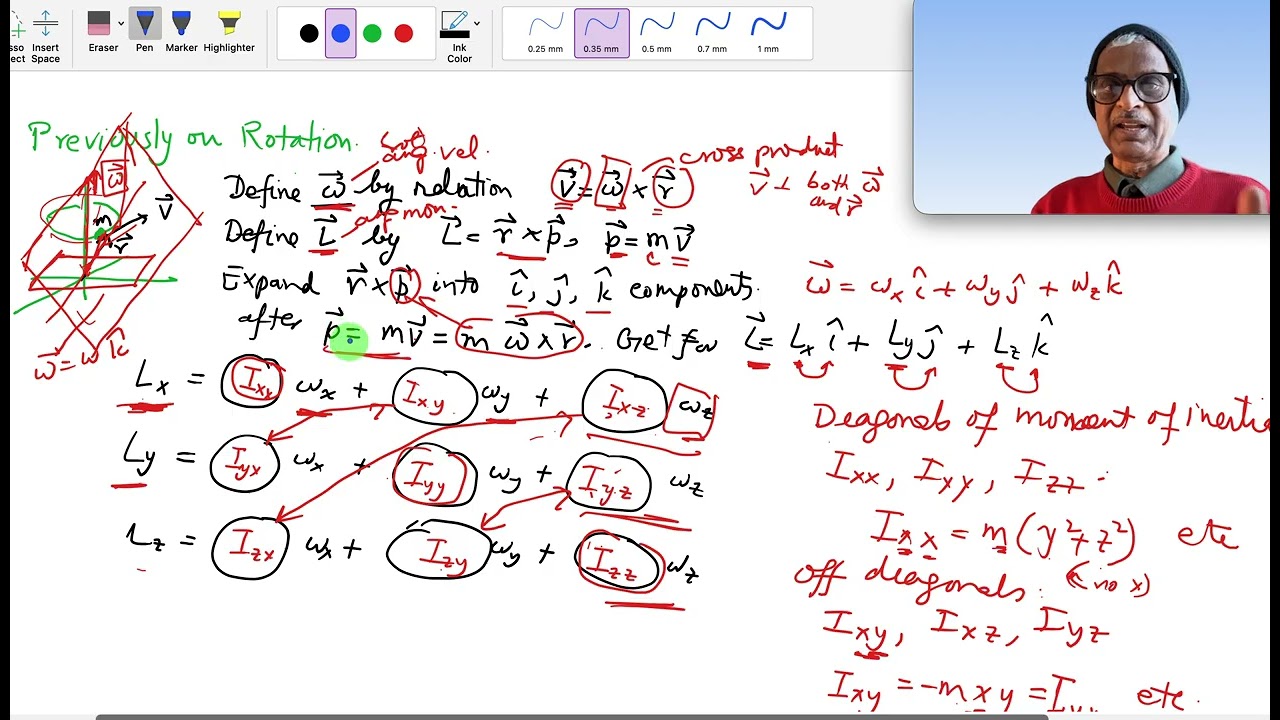 Insert
Space
Eraser
Pen
Marker
Highlighter
Ink
Color
0.25 mm
0.35 mm
0.5 mm
0.7 mm
1 mm
Previously on Rotation.
ang. vel.
Define ω⃗ by relation v⃗ = ω⃗ × r⃗
cross product
v⃗ ⊥ both ω⃗
and r⃗
ω⃗
m
v⃗
r⃗
ang mon.
Define L⃗ by L⃗ = r⃗ × p⃗, p⃗ = m v⃗
Expand r⃗ × p⃗ into î, ĵ, k̂ components.
ω⃗ = ωx î + ωy ĵ + ωz k̂
after p⃗ = m v⃗ = m ω⃗ × r⃗. Get for L⃗ = Lx î + Ly ĵ + Lz k̂
ω⃗ = ω k̂
Lx = Ixx ωx + Ixy ωy + Ixz ωz
Ly = Iyx ωx + Iyy ωy + Iyz ωz
Lz = Izx ωx + Izy ωy + Izz ωz
Deagonals of moment of inertia
Ixx, Ixy, Izz.
Ixx = m(y² + z²) etc
off deagonals. (no x)
Ixy, Ixz, Iyz
Ixy = -m x y = etc.